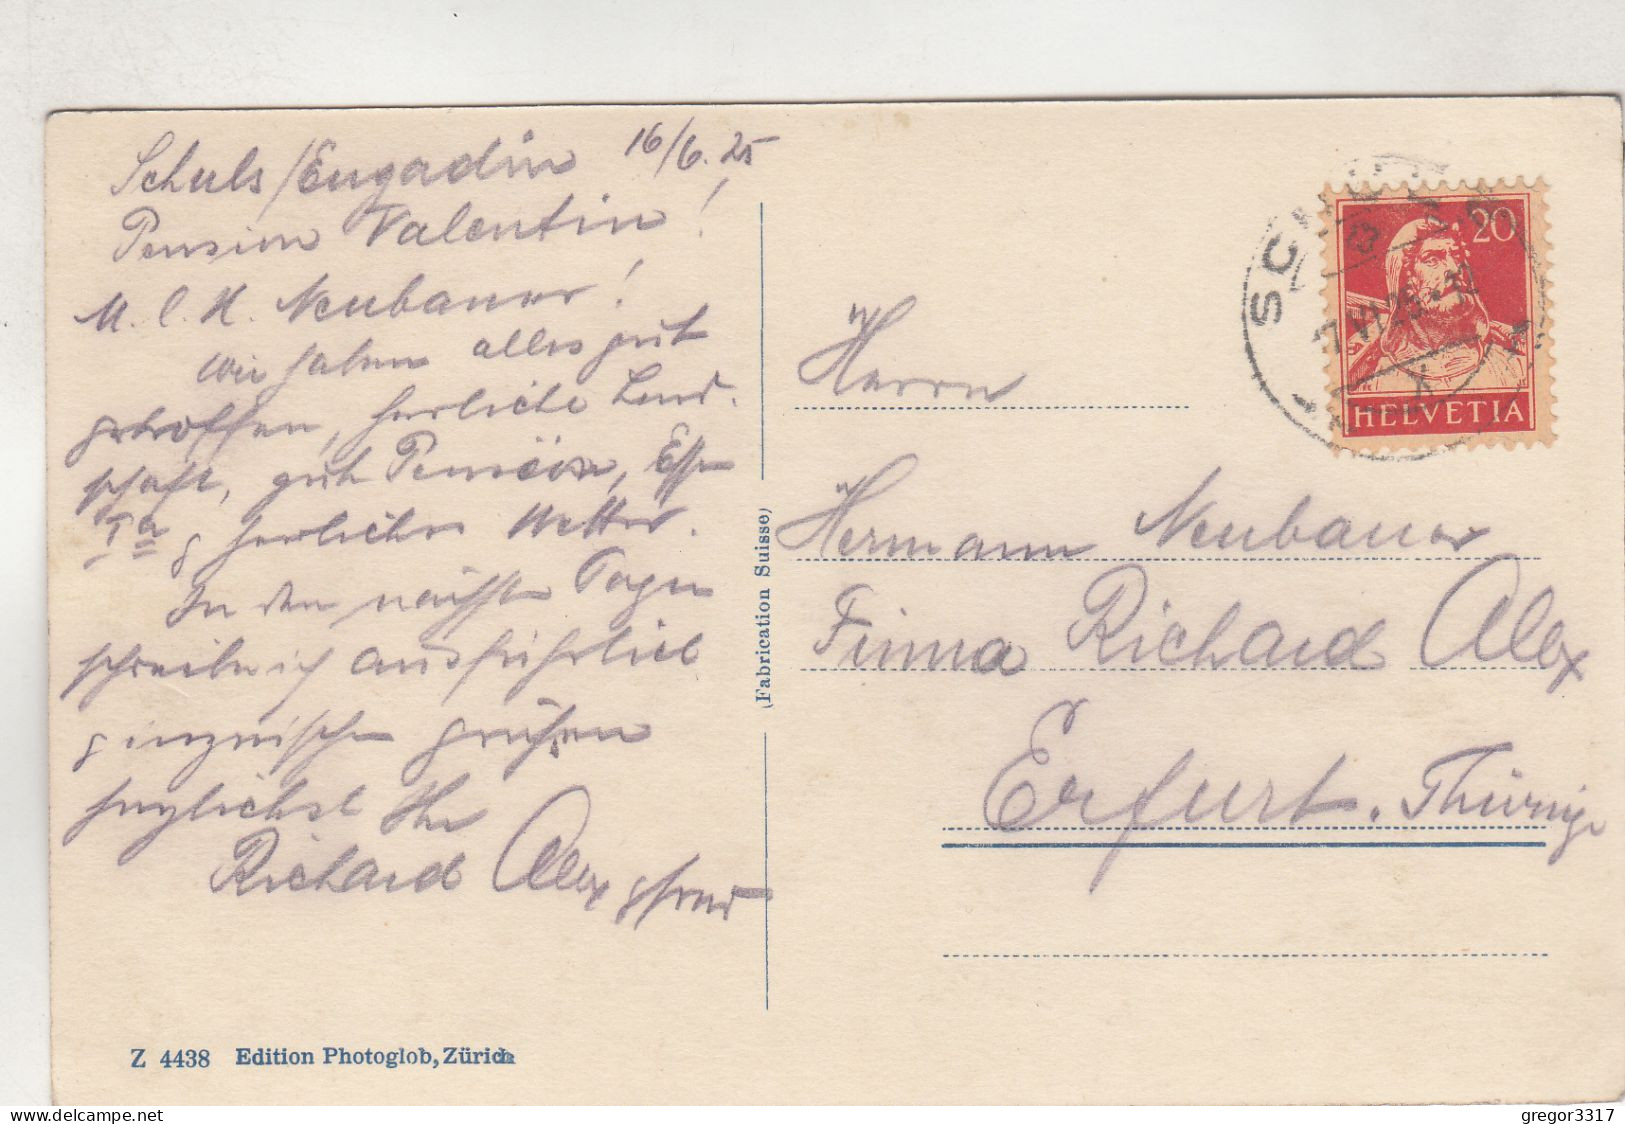 Schuls/Engadin 16/6.25
Pension Valentin!
M. l. H. Neubauer!
Wir haben alles gut
getroffen, herrliche Land-
schaft, gute Pension, Essen
Ia & herrliches Wetter.
In den nächsten Tagen
schreibe ich ausführlich
& inzwischen grüßen
herzlichst Ihr
Richard Alex & Frau
Z 4438 Edition Photoglob, Zürich
(Fabrication Suisse)
20
HELVETIA
Herrn
Hermann Neubauer
Firma Richard Alex
Erfurt. Thüringen
gregor3317
delcampe.net